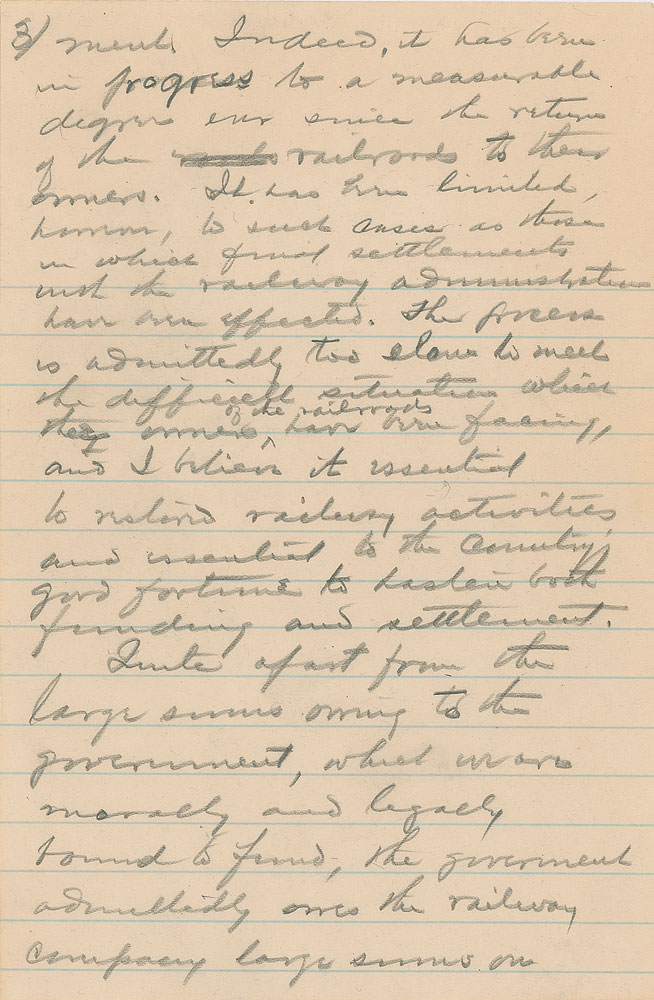 3/ ment. Indeed, it has been
in progress to a measurable
degree ever since the return
of the railroads to their
owners. It has been limited,
however, to such cases as those
in which final settlements
with the railway administration
have been effected. The process
is admittedly too slow to meet
the difficult situation which
the owners of the railroads have been facing,
and I believe it essential
to restored railway activities
and essential to the country's
good fortune to hasten both
funding and settlement.
Quite apart from the
large sums owing to the
government, which we are
morally and legally
bound to fund, the goverment
admittedly owes the railway
company large sums on